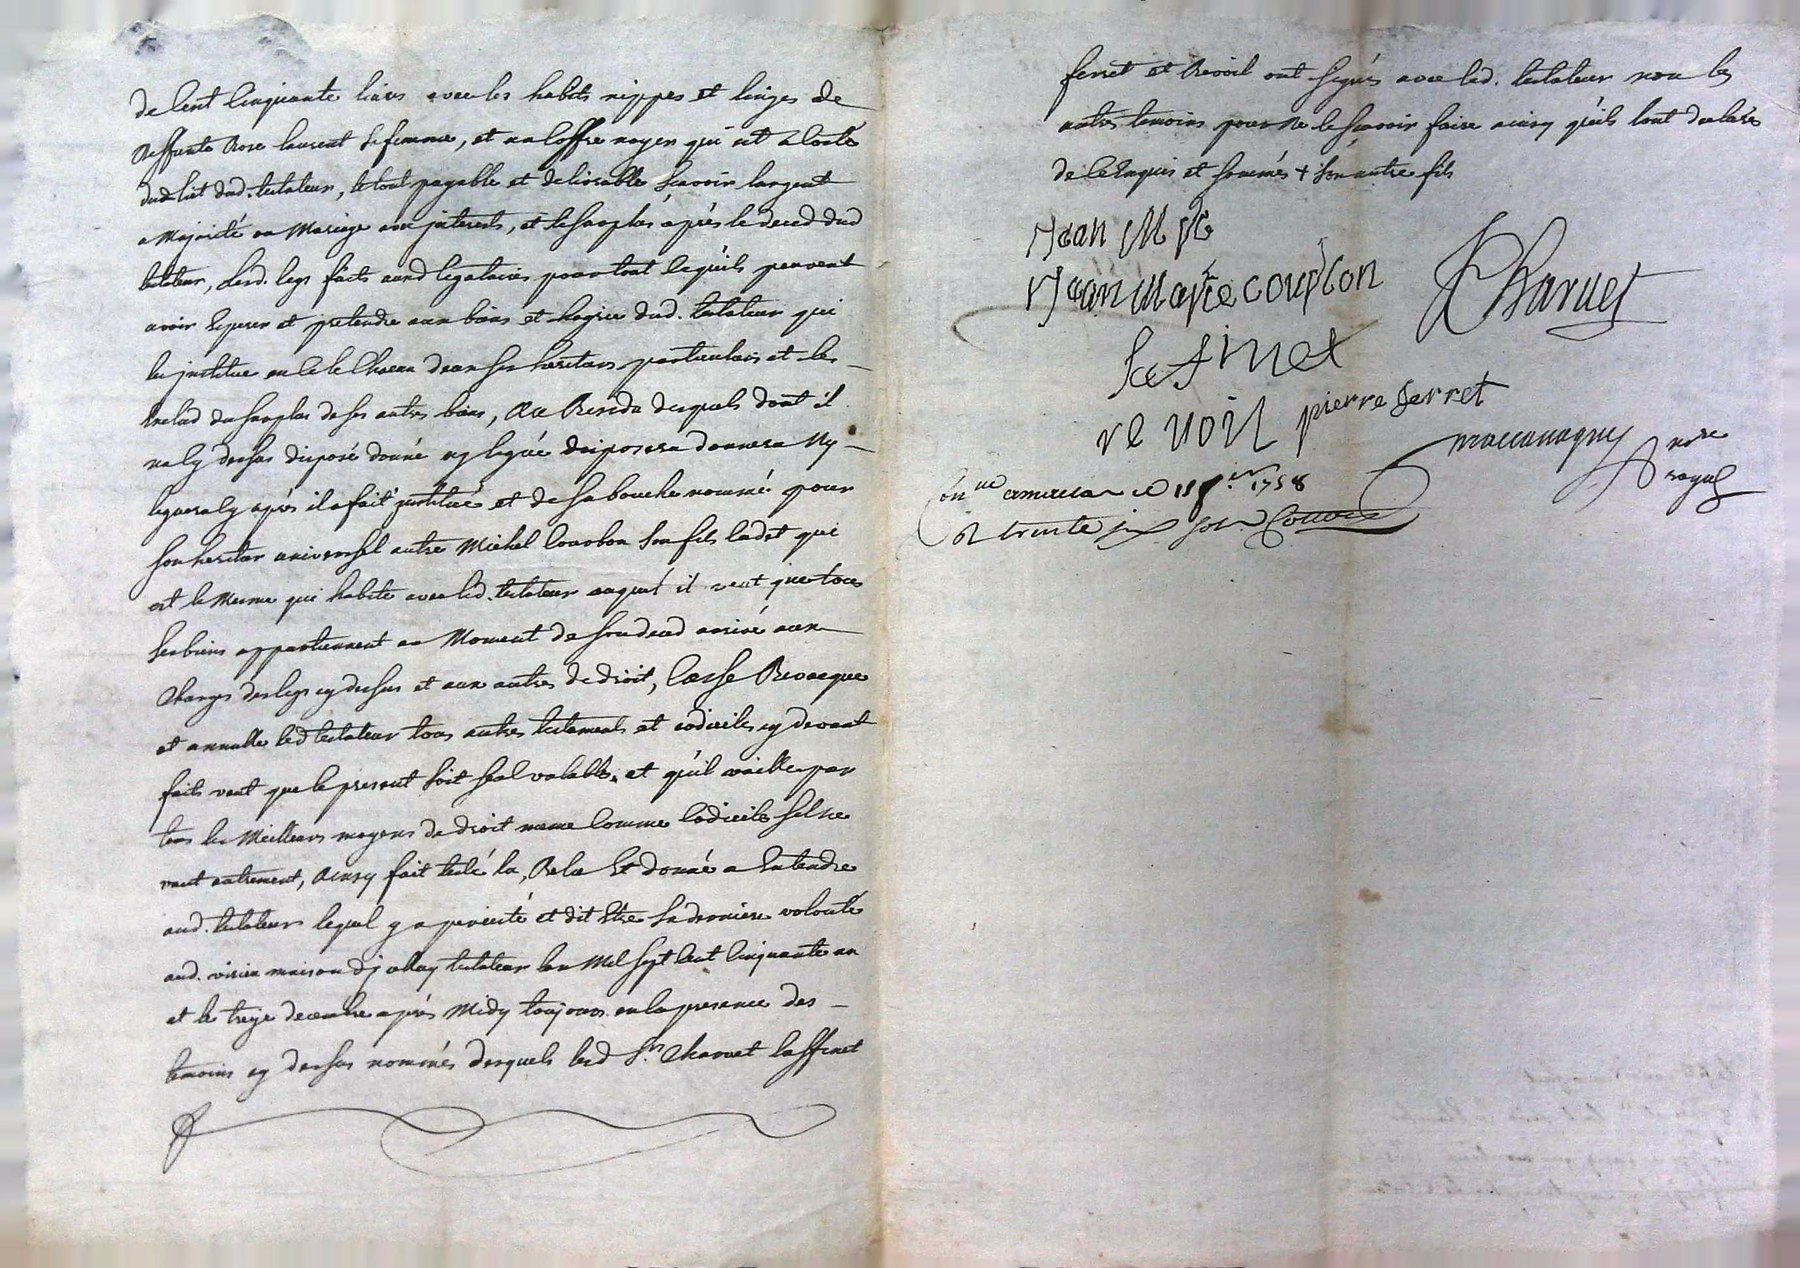 de Cent Cinquante livres avec les habits nippes et linges de
deffunte Rose laurent sa femme, et un Coffre noyer qui est a Costé
du lit dud. testateur, le tout payable et delivrable scavoir largent
a Majorité ou Mariage sans interests, et le surplus après le deced dud
testateur, Lesd. legs faits auxd legataires pour tout ce qu'ils peuvent
avoir esperer et pretendre aux biens et hoyrie dud. testateur qui
les institue en ce le Chacun deux ses heritiers particuliers et les
du surplus de ses autres biens, Au Residu desquels dont il
na Cy dessus disposé donné ny legué disposera donnera Ny
leguera Cy après il a fait institué et de sa bouche nommé pour
son heritier universel autre Michel Courbon son fils Cadet qui
est le Mesme qui habite avec led. testateur auquel il veut que tous
ses biens appartiennent au Moment de son deced arrivé aux
Charges des legs cy dessus et aux autres de droit, Casse Revocque
et annulle led testateur tous autres testaments et codiciles cy devant
faits veut que le present soit seul valable, et qu'il vaille par
tous les Meilleurs moyens de droit meme Comme Codicile sil ne
vaut autrement, Ainsy fait testé lu, Relu Et donné a Entendre
aud. testateur lequel y a persisté et dit Etre sa derniere volonté
aud. maison dj testateur lan Mil Sept Cent Cinquante un
et le treize decembre après Midy toujours en la presence des
temoins cy dessus nommés desquels led Sr. Charuet Laffinet
ferret et Revoil ont signés avec led. testateur non les
autres temoins pour Ne le Scavoir faire ainsy qu'ils lont declarés
de ce Enquis et sommés + son autre fils
Jean M
Jean Marie courbon
Charuet
lafinet
revoil pierre ferret
nore
royal
Conlle 1758
R trente six sols